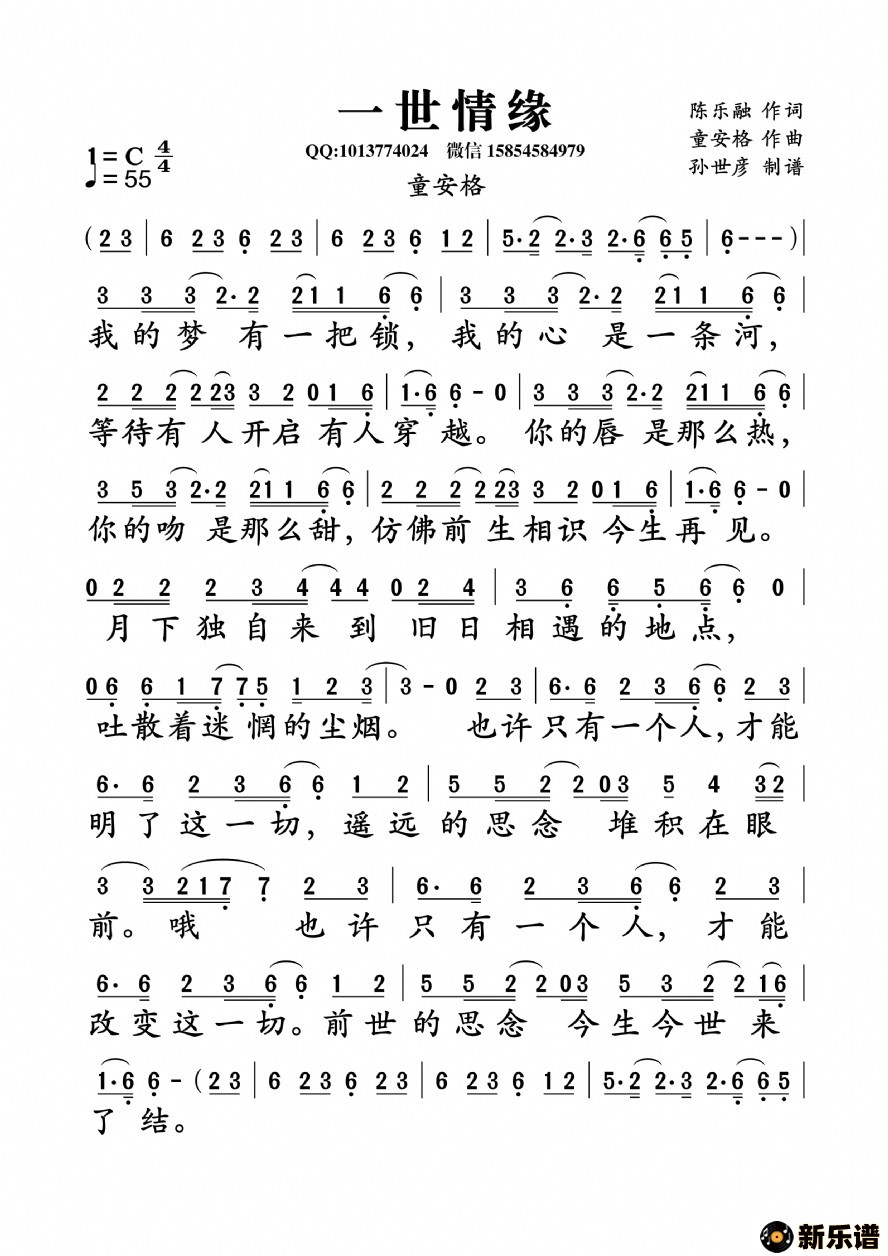 一世情缘
陈乐融 作词
童安格 作曲
孙世彦 制谱
1=C 4/4
♩=55
QQ:1013774024 微信 15854584979
童安格
(2 3 | 6 2 3 6 2 3 | 6 2 3 6 1 2 | 5·2 2·3 2·6 6 5 | 6 - - - )|
3 3 3 2·2 2 1 1 6 6 | 3 3 3 2·2 2 1 1 6 6 |
我的梦 有一把锁，我的心 是一条河，
2 2 2 2 2 3 3 2 0 1 6 | 1·6 6 - 0 | 3 3 3 2·2 2 1 1 6 6 |
等待有人开启有人穿越。你的唇是那么热，
3 5 3 2·2 2 1 1 6 6 | 2 2 2 2 2 3 3 2 0 1 6 | 1·6 6 - 0 |
你的吻 是那么甜，仿佛前生相识今生再见。
0 2 2 2 3 4 4 4 0 2 4 | 3 6 6 5 6 6 0 |
月下独自来到旧日相遇的地点，
0 6 6 1 7 7 5 1 2 3 | 3 - 0 2 3 | 6·6 2 3 6 6 2 3 |
吐散着迷惘的尘烟。 也许只有一个人，才能
6·6 2 3 6 6 1 2 | 5 5 2 2 0 3 5 4 3 2 |
明了这一切，遥远的思念 堆积在眼
3 3 2 1 7 7 2 3 | 6·6 2 3 6 6 2 3
前。哦 也许只有一个人，才能
6·6 2 3 6 6 1 2 | 5 5 2 2 0 3 5 3 2 2 1 6 |
改变这一切。前世的思念 今生今世来
1·6 6 - (2 3 | 6 2 3 6 2 3 | 6 2 3 6 1 2 | 5·2 2·3 2·6 6 5 |
了结。
新乐谱